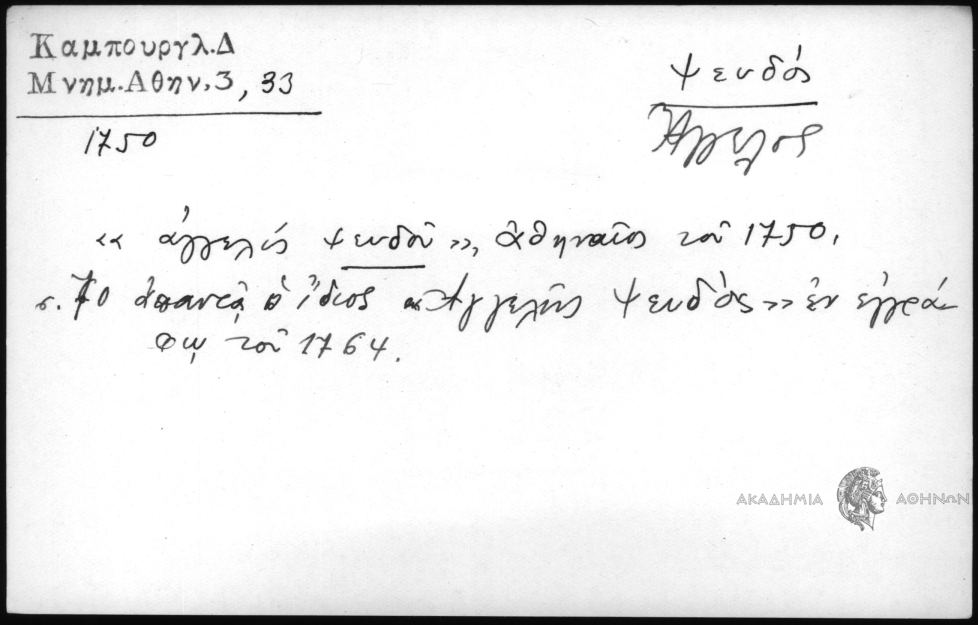 Καμπουργλ.Δ
Μνημ.Αθην.3, 33
1750
ψευδός
Ἄγγελος
«ἀγγελής ψευδοῦ», ἀθηναῖος τοῦ 1750.
σ. 70 ἀπαντᾷ ὁ ἴδιος «Ἀγγελῆς Ψευδὸς» ἐν ἐγγρά-
φῳ τοῦ 1764.
ΑΚΑΔΗΜΙΑ ΑΘΗΝΩΝ